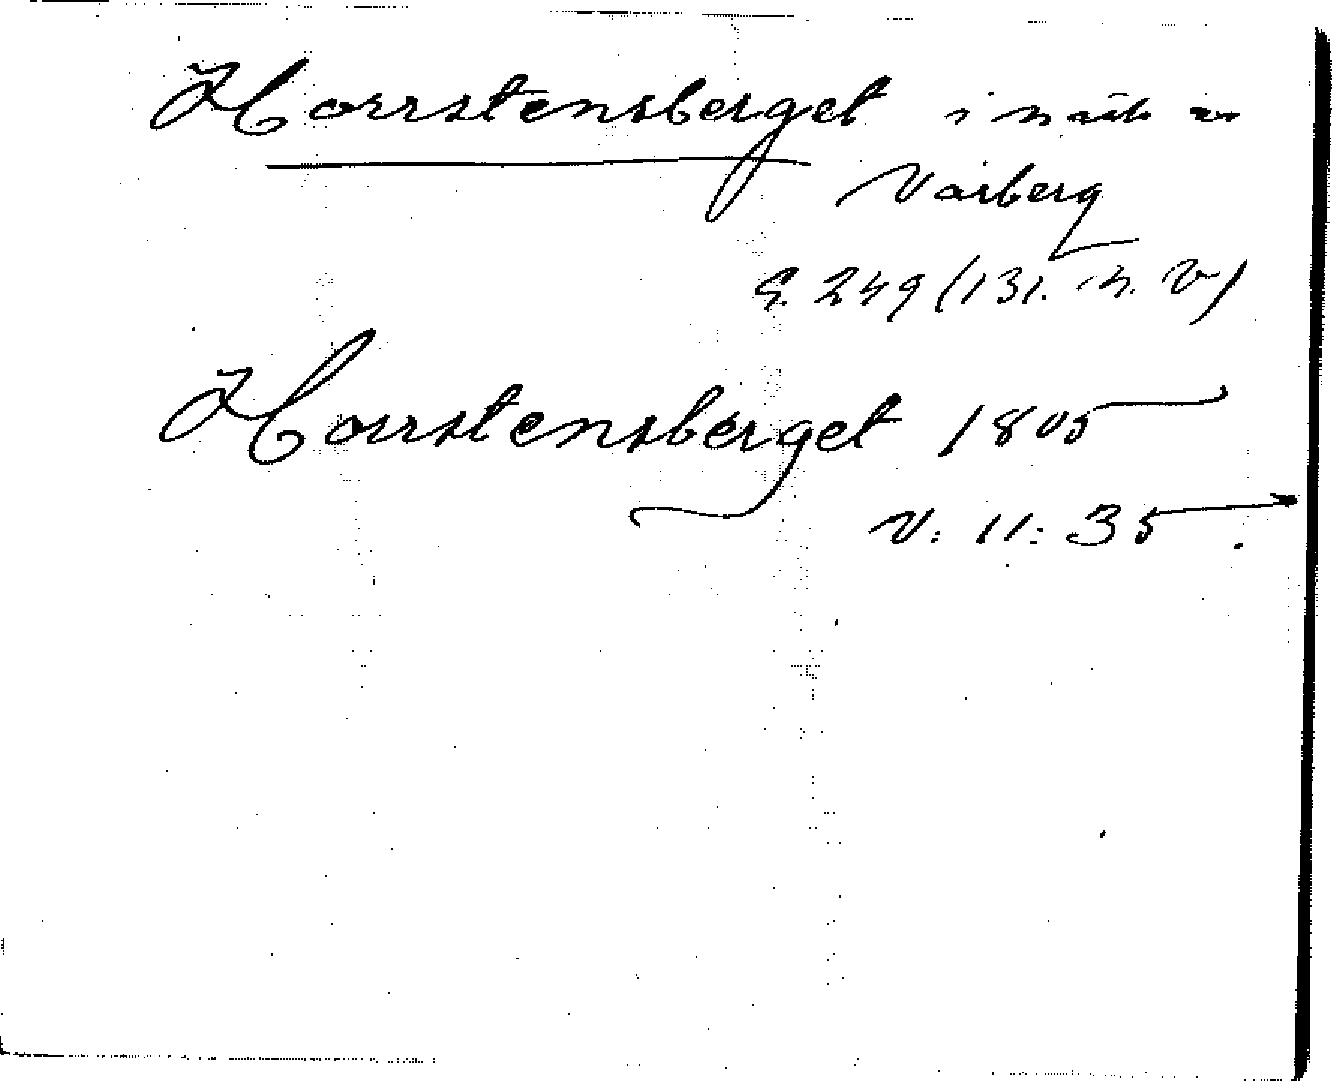 Horrstensberget i
Varberg
S. 249 (131.
Horrstensberget 1805
V. 11: 35